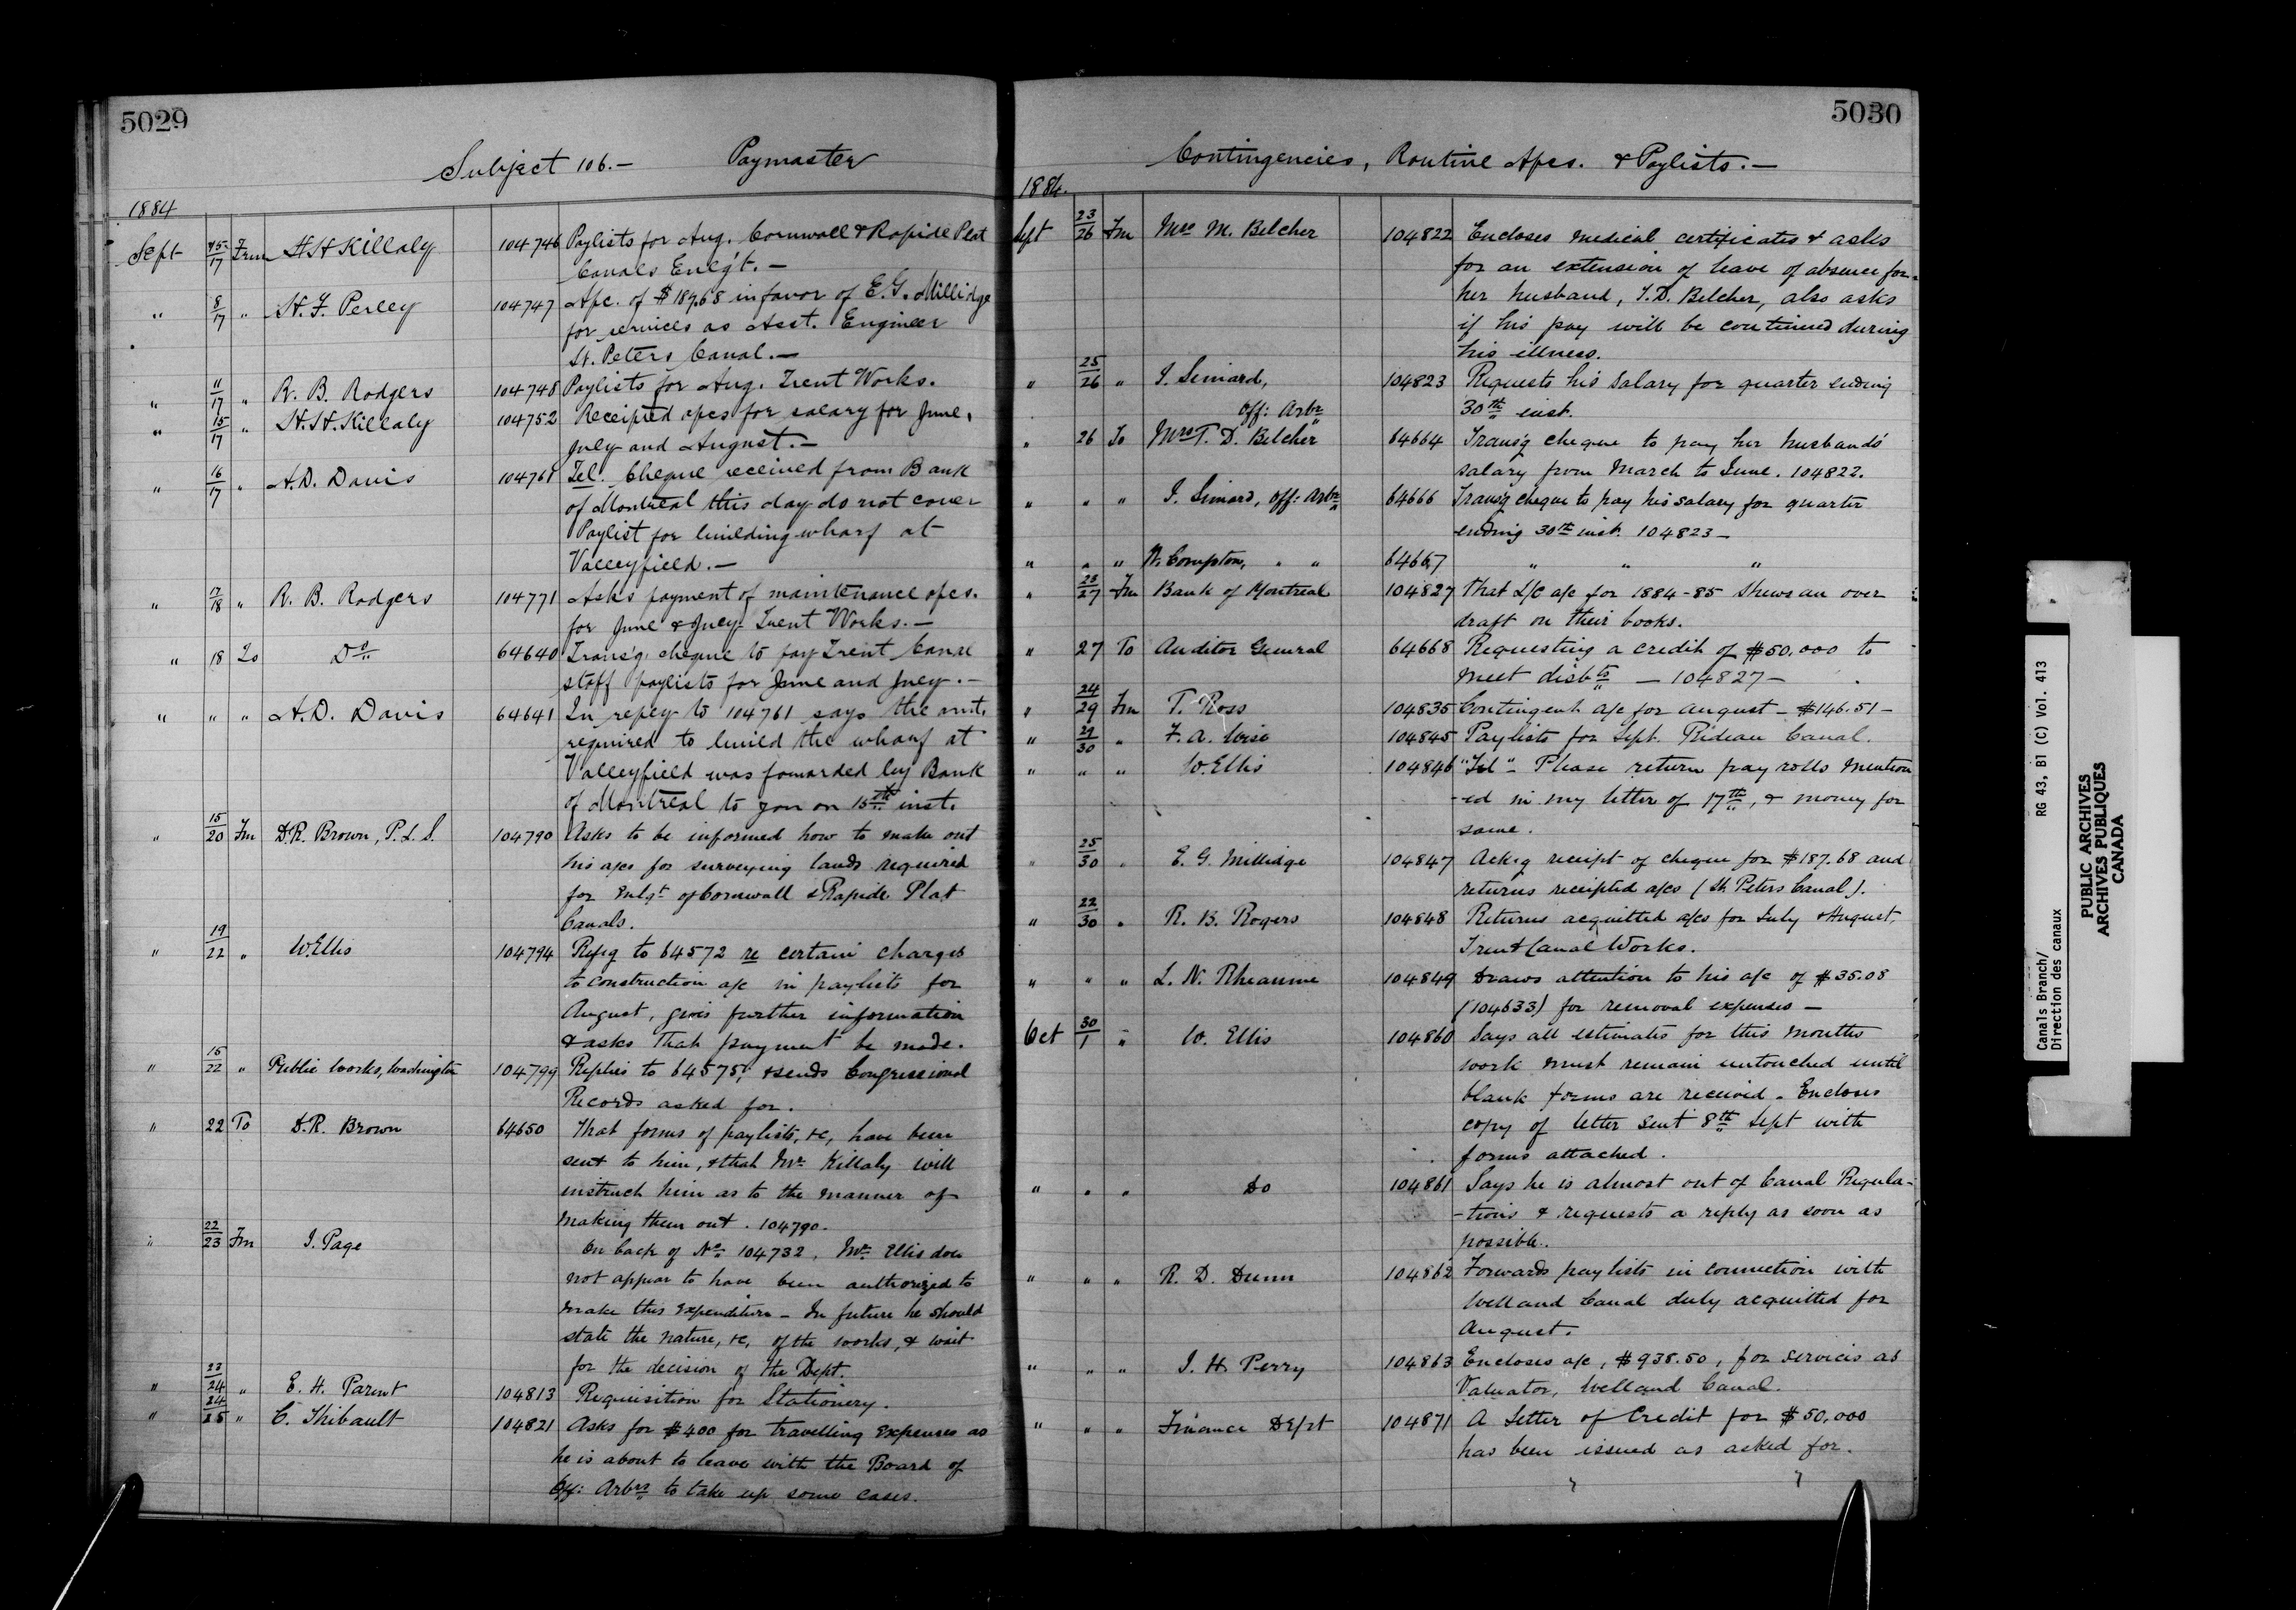 5029
Subject 106.— Paymaster
1884
Sept 15/17 Frm H H Killaly 104746 Paylists for Aug. Cornwall & Rapide Plat
Canals Enlg't.—
" 8/17 " H. F. Perley 104747 Apc. of $187.68 in favor of E. G. Millidge
for services as Asst. Engineer
St. Peters Canal.—
" 11/17 " R. B. Rodgers 104748 Paylists for Aug. Trent Works.
" 15/17 " H. H. Killaly 104752 Receipted apcs for salary for June,
July and August.—
" 16/17 " A. D. Davis 104761 Tel. Cheque received from Bank
of Montreal this day do not cover
Paylist for building wharf at
Valleyfield.—
" 17/18 " R. B. Rodgers 104771 Asks payment of maintenance apcs.
for June & July Trent Works.—
" 18 To Do 64640 Trans'g cheque to pay Trent Canal
staff paylists for June and July.—
" " " A. D. Davis 64641 In reply to 104761 says the amt.
required to build the wharf at
Valleyfield was fowarded by Bank
of Montreal to you on 15th inst.
" 15/20 Fm D. R. Brown, P. L. S. 104790 Asks to be informed how to make out
his a/cs for surveying lands required
for Enlgt of Cornwall & Rapide Plat
Canals.
" 19/22 " W. Ellis 104794 Refg to 64572 re certain charges
to construction a/c in paylists for
August, gives further information
& asks that payment be made.
" 15/22 " Public Works, Washington 104799 Replies to 64575, & sends Congressional
Records asked for.
" 22 To D. R. Brown 64650 That forms of paylists, &c, have been
sent to him, & that Mr Killaly will
instruct him as to the manner of
making them out. 104790.
" 22/23 Fm J. Page On back of No 104732. Mr Ellis does
not appear to have been authorized to
make this expenditure — In future he should
state the nature, &c, of the works, & wait
for the decision of the Dept.
" 23/24 " E. H. Parent 104813 Requisition for Stationery.
" 24/25 " C. Thibault 104821 Asks for $400 for travelling expenses as
he is about to leave with the Board of
Off: Arbrs to take up some cases.
5030
Contingencies, Routine Apcs. & Paylists.—
1884.
Sept 23/26 Fm Mrs M. Belcher 104822 Encloses medical certificates & asks
for an extension of leave of absence for
her husband, T. D. Belcher, also asks
if his pay will be continued during
his illness.
" 25/26 " J. Simard, 104823 Requests his salary for quarter ending
Off: Arbr 30th inst.
" 26 To Mrs T. D. Belcher 64664 Trans'g cheque to pay her husband's
salary from March to June. 104822.
" " " J. Simard, Off: Arbr 64666 Trans'g cheque to pay his salary for quarter
ending 30th inst. 104823 —
" " " W. Compton, " " 64667 " " "
" 25/27 Fm Bank of Montreal 104827 That L/C a/c for 1884-85 shews an over
draft on their books.
" 27 To Auditor General 64668 Requesting a credit of $50,000 to
meet disbts — 104827 —
" 24/29 Fm T. Ross 104835 Contingent a/c for August — $146.51 —
" 29/30 " F. A. Wise 104845 Paylists for Sept. Rideau Canal.
" " " W. Ellis 104846 "Tel" — Please return pay rolls mention
-ed in my letter of 17th, & money for
same.
" 25/30 " E. G. Millidge 104847 Ackg receipt of cheque for $187.68 and
returns receipted a/cs (St. Peters Canal).
" 22/30 " R. B. Rogers 104848 Returns acquitted a/cs for July & August,
Trent Canal Works.
" " " L. N. Rheaume 104849 Draws attention to his a/c of $35.08
(104633) for removal expenses —
Oct 30/1 " W. Ellis 104860 Says all estimates for this months
work must remain untouched until
blank forms are received. Encloses
copy of letter sent 8th Sept with
forms attached.
" " " Do 104861 Says he is almost out of Canal Regula-
-tions & requests a reply as soon as
possible.
" " " R. D. Dunn 104862 Forwards paylists in connection with
Welland Canal duly acquitted for
August.
" " " J. H. Perry 104863 Encloses a/c, $938.50, for services as
Valuator, Welland Canal.
" " " Finance Dept 104871 A Letter of Credit for $50,000
has been issued as asked for.
Canals Branch/ RG 43, B1 (C) Vol. 413
Direction des canaux
PUBLIC ARCHIVES
ARCHIVES PUBLIQUES
CANADA